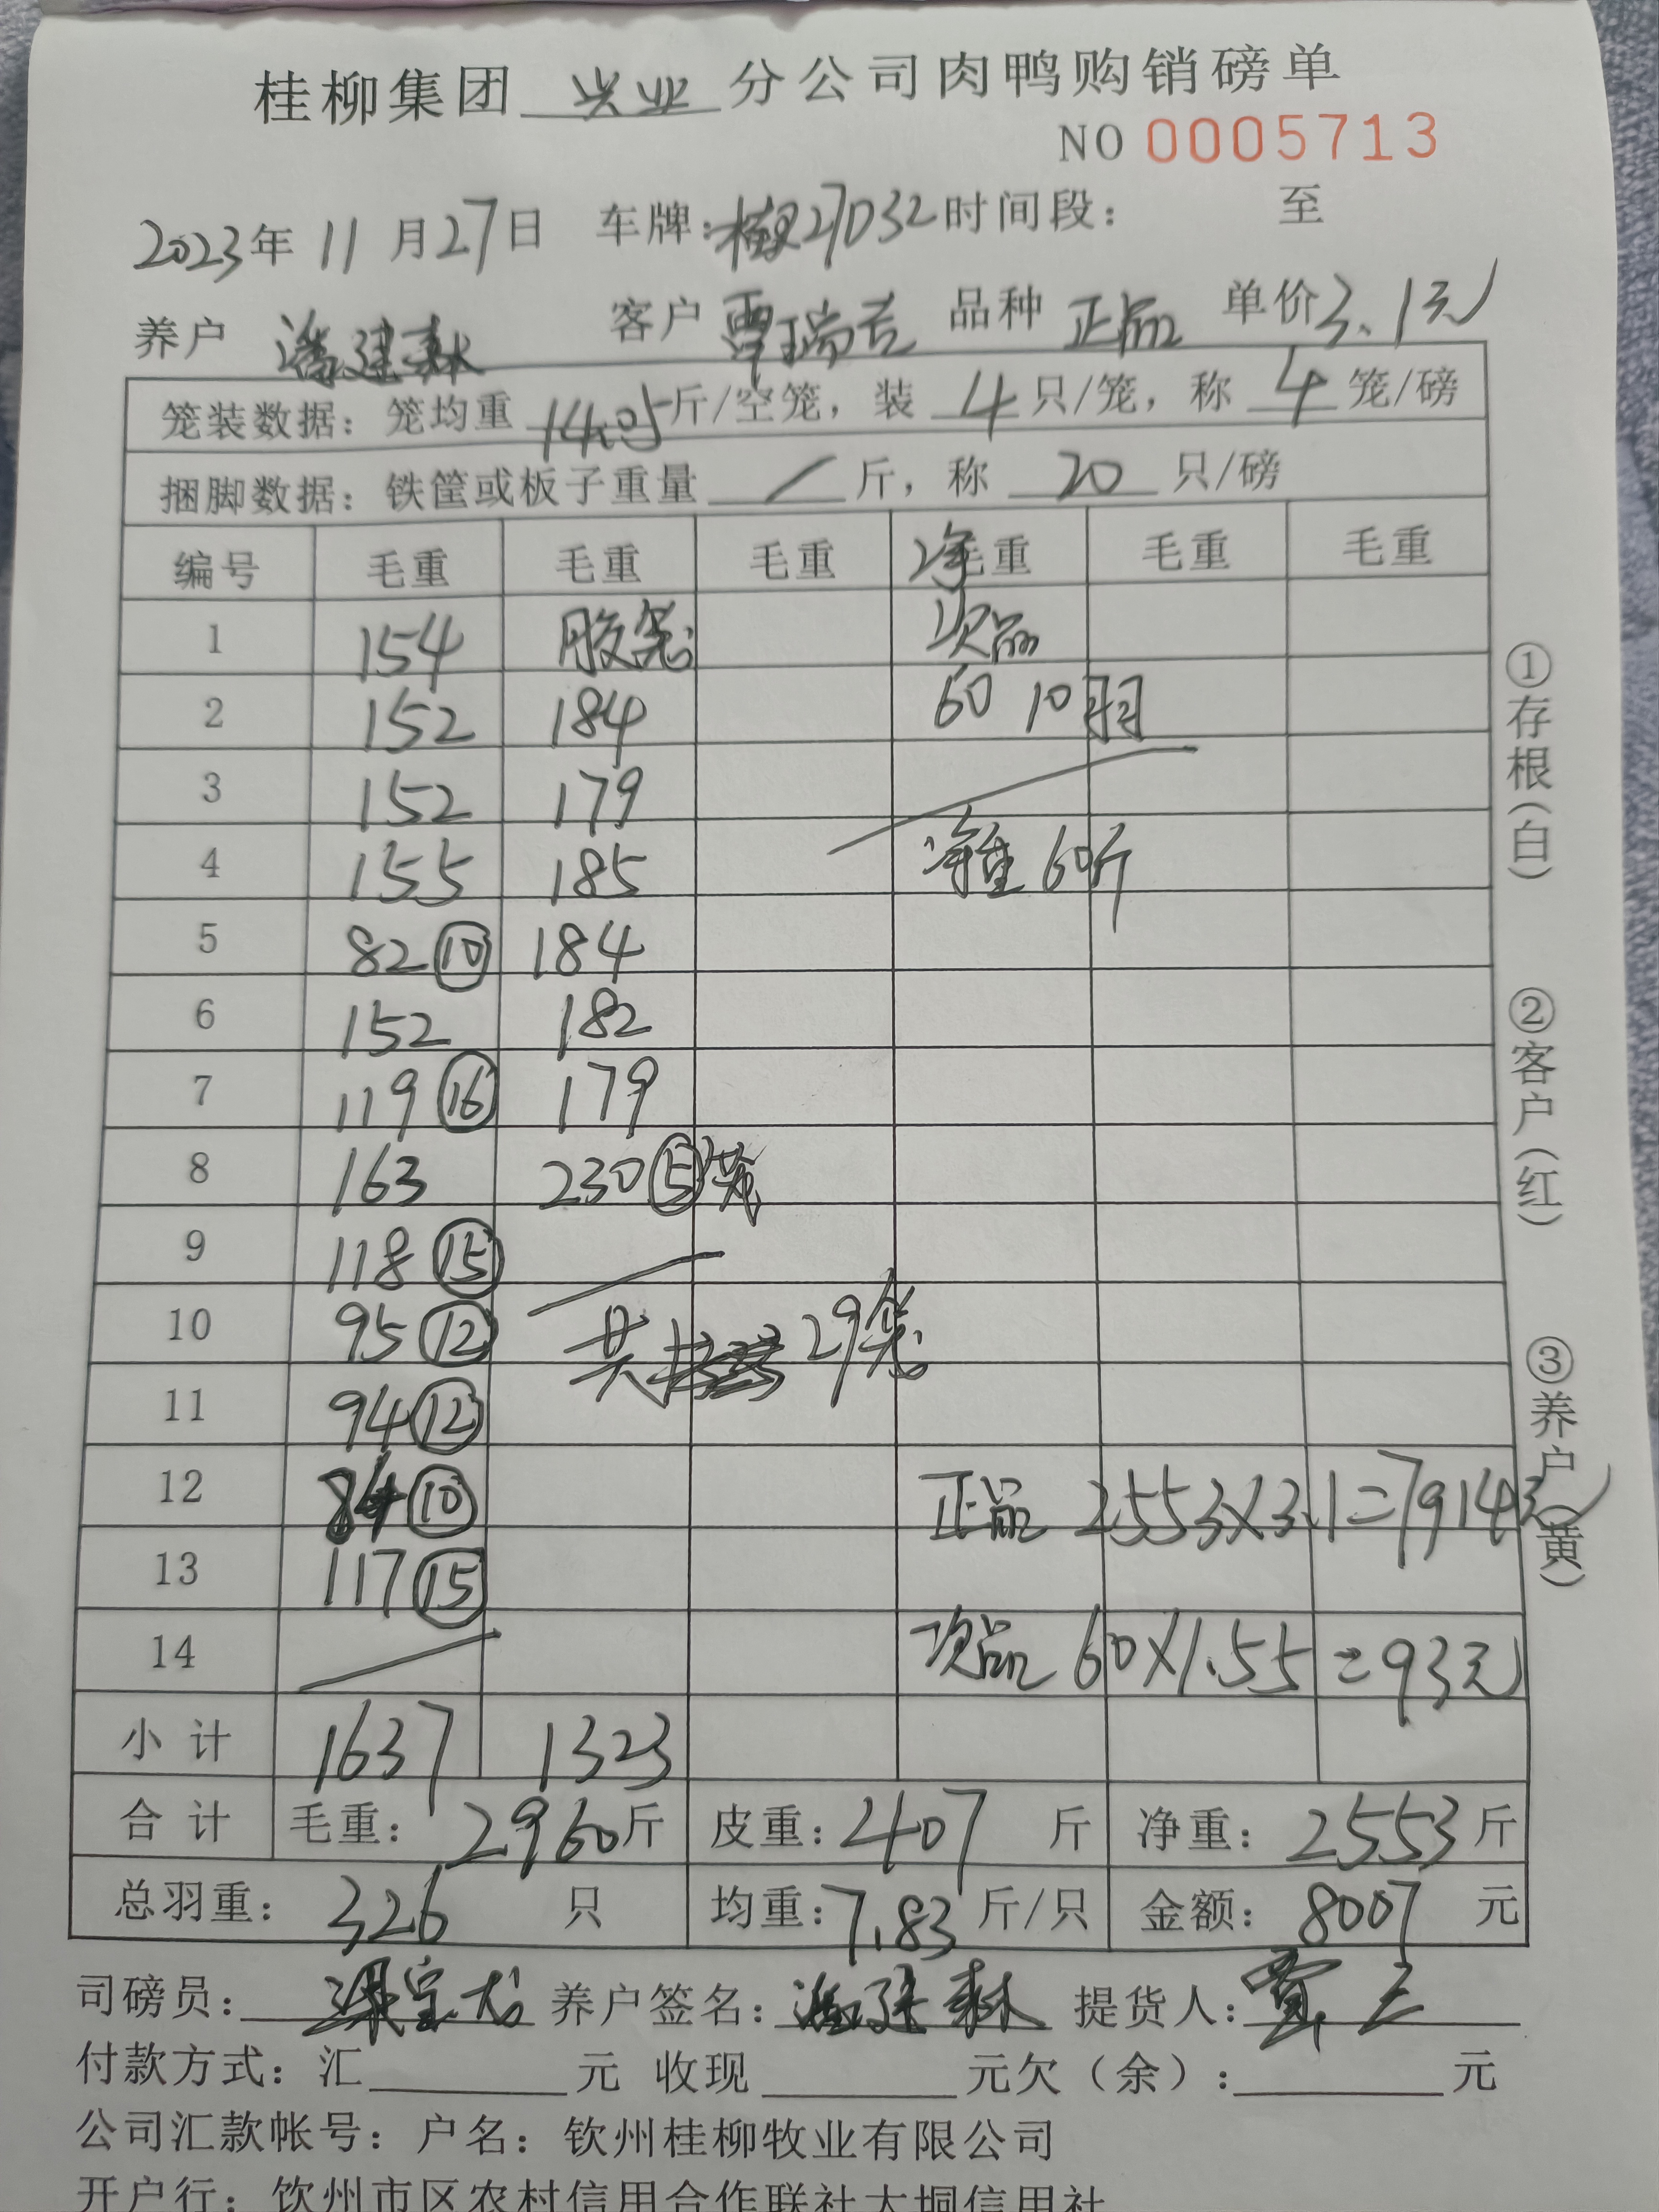 桂柳集团 兴业 分公司肉鸭购销磅单
NO 0005713
2023年 11 月 27 日 车牌: 27D32 时间段: 至
养户 潘建森 客户 覃瑞吉 品种 正品 单价 3.1元
笼装数据: 笼均重 14.05 斤/空笼, 装 4 只/笼, 称 4 笼/磅
捆脚数据: 铁筐或板子重量 / 斤, 称 20 只/磅
编号 毛重 毛重 毛重 净毛重 毛重 毛重
1 154 胶笼 次品
2 152 184 60 10羽
3 152 179
4 155 185 净重 60斤
5 82 ⑩ 184
6 152 182
7 119 ⑯ 179
8 163 230 ⑤笼
9 118 ⑮
10 95 ⑫ 共 29笼
11 94 ⑫
12 84 ⑩ 正品 2553×3.1=7914元
13 117 ⑮
14 次品 60×1.55=93元
小计 1637 1323
合计 毛重: 2960斤 皮重: 407 斤 净重: 2553斤
总羽重: 326 只 均重: 7.83 斤/只 金额: 8007 元
司磅员: 养户签名: 潘建森 提货人: 覃
付款方式: 汇 元 收现 元欠(余): 元
公司汇款帐号: 户名: 钦州桂柳牧业有限公司
开户行: 钦州市区农村信用合作联社大垌信用社
①存根(白) ②客户(红) ③养户(黄)